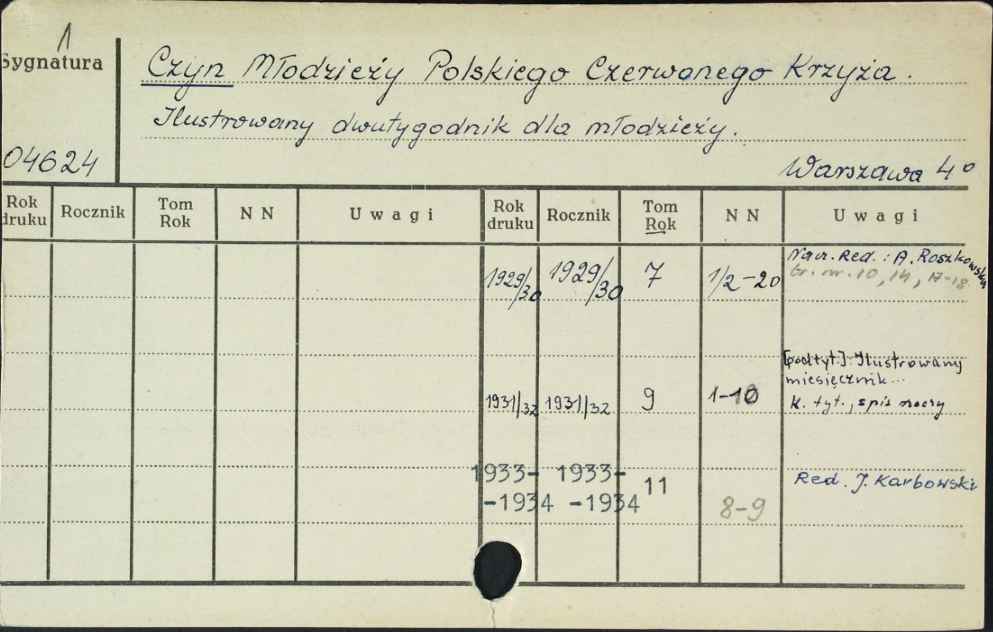 1
Sygnatura
Czyn Młodzieży Polskiego Czerwonego Krzyża.
Ilustrowany dwutygodnik dla młodzieży.
04624
Warszawa 4°
Rok druku Rocznik Tom Rok N N Uwagi Rok druku Rocznik Tom Rok N N Uwagi
1929/30 1929/30 7 1/2-20 Nacz. Red.: A. Roszkowska
br. nr. 10, 14, 17-18
[podtyt.]: Ilustrowany
miesięcznik...
1931/32 1931/32 9 1-10 k. tyt., spis rzeczy
1933- 1933- 11 Red. J. Karbowski
-1934 -1934 8-9